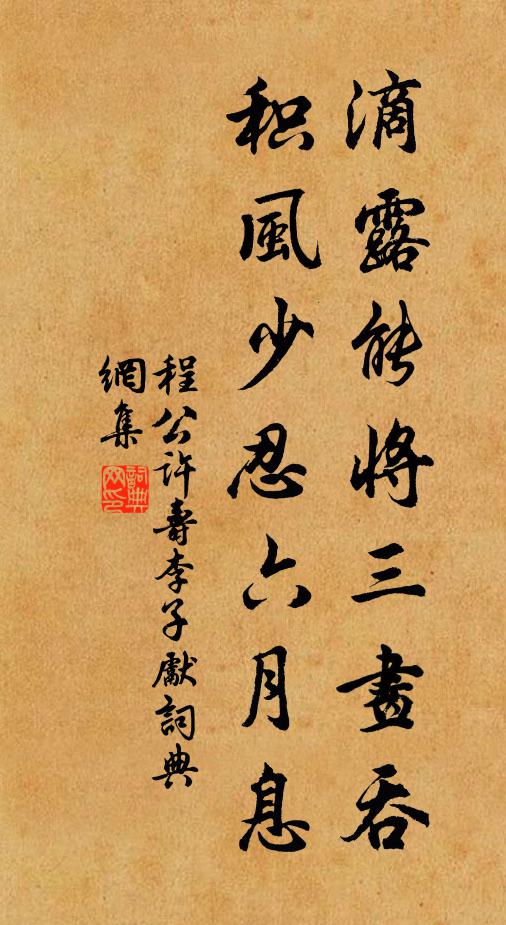 滴露能將三畫吞
积風少忍六月息
程公許壽李子獻詞典
網集
詞典網印